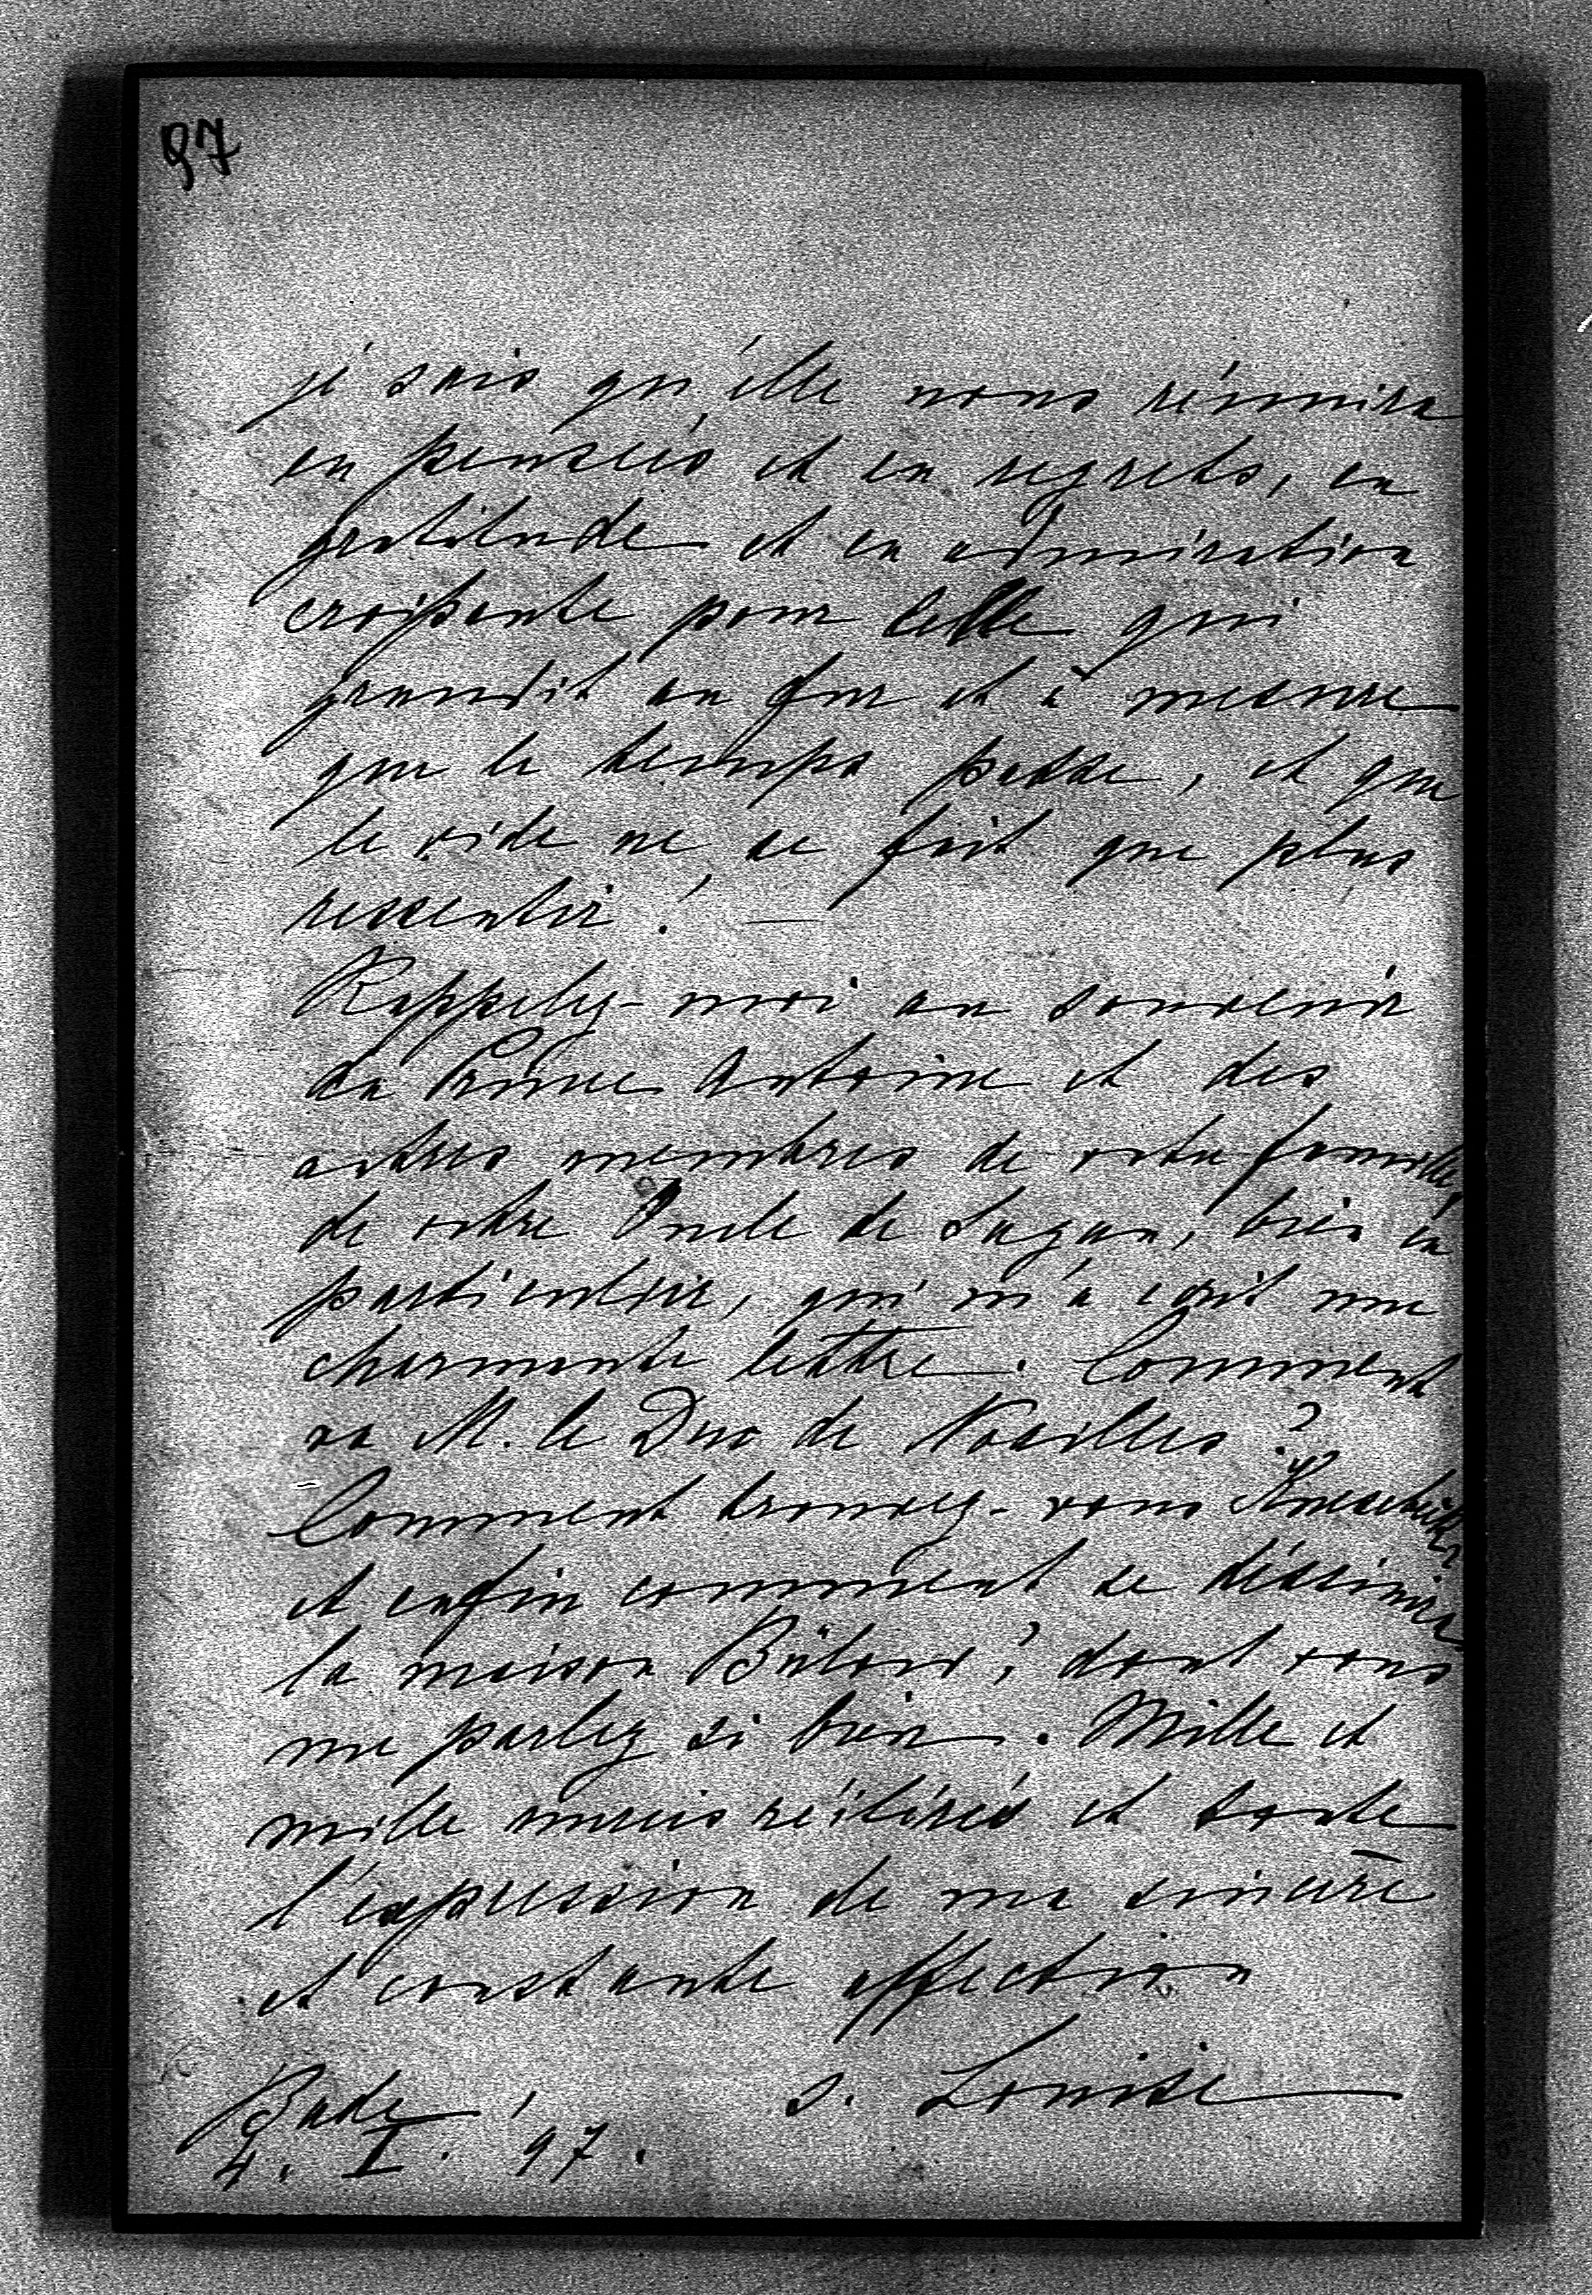 97
je sais qu'elle nous réunira
en pensées et en regrets, en
gratitude et en admiration
croissante pour celle qui
grandit au fur et à mesure
que le temps passe, et que
le vide ne se fait que plus
ressentir! —
Rappelez-moi au souvenir
du Prince Antoine et des
autres membres de votre famille,
de votre Oncle de Sagan, bien en
particulier, qui m'a écrit une
charmante lettre. Comment
va M. le Duc de Noailles?
Comment trouvez-vous
et enfin comment se déssinera
la maison Bülow?, dont vous
me parlez si bien. Mille et
mille mercis réitérés et toute
l'expression de ma sincère
et constante affection
s. Louise
Bade,
4. I. 97.